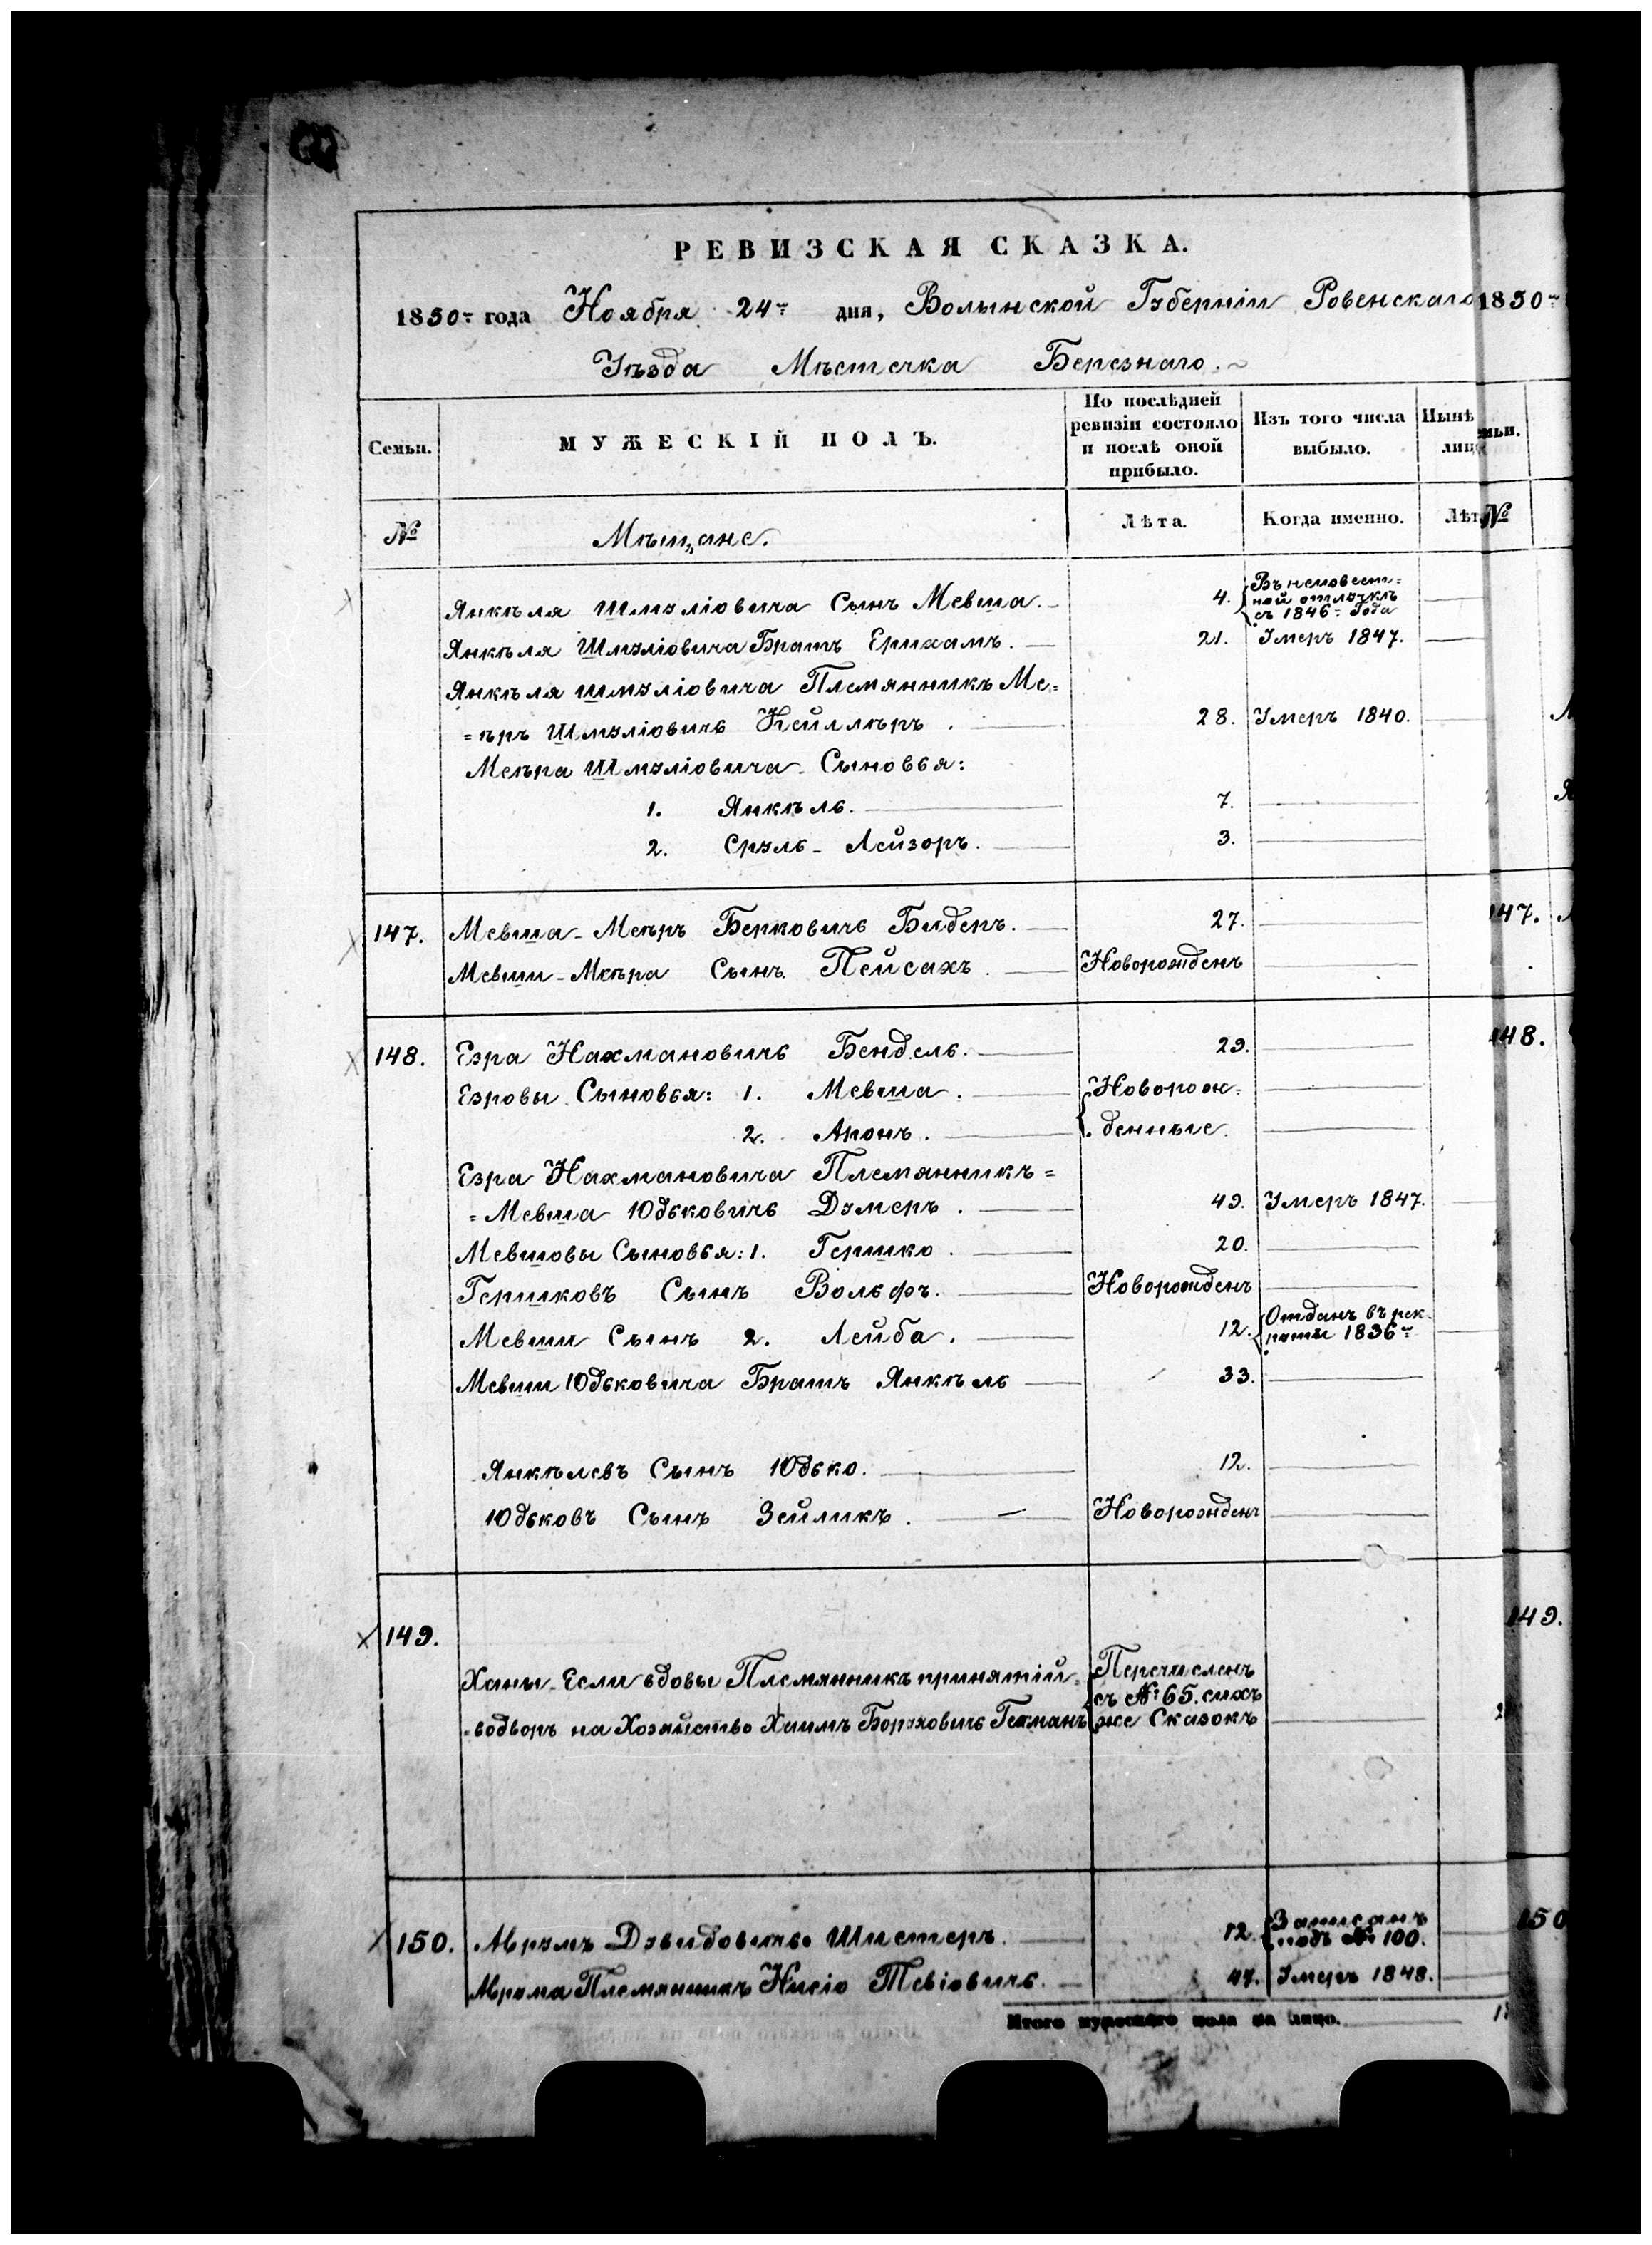 РЕВИЗСКАЯ СКАЗКА.
1850го года Ноября 24го дня, Волынской Губерніи Ровенскаго
1850го
Уѣзда Мѣстечка Березнаго.
Семьи.
МУЖЕСКІЙ ПОЛЪ.
По послѣдней ревизіи состояло и послѣ оной прибыло.
Изъ того числа выбыло.
Нынѣ лиц
мьи.
№
Мѣщане.
Лѣта.
Когда именно.
Лѣт
№
Янкѣля Шмуліовича Сынъ Мевша. 4. Въ неизвест=
ной отлучкѣ
съ 1846го Года
Янкѣля Шмуліовича Братъ Ерухамъ. 21. Умеръ 1847.
Янкѣля Шмуліовича Племянникъ Ме=
=ѣръ Шмуліовичь Кейлмѣръ. 28. Умеръ 1840.
Меѣра Шмуліовича Сыновья:
1. Янкѣль. 7.
2. Сруль-Лейзоръ. 3.
147. Мевша-Меѣръ Берковичь Бидеръ. 27. 147.
Мевши-Меѣра Сынъ Пейсахъ. Новорожденъ
148. Езра Нахмановичь Бендель. 29. 148.
Езровы Сыновья: 1. Мевша. Новорож=
2. Аронъ. денные.
Езра Нахмановича Племянникъ=
=Мевша Юдьковичь Думеръ. 49. Умеръ 1847.
Мевшовы Сыновья: 1. Гершко. 20.
Гершковъ Сынъ Вольфъ. Новорожденъ
Мевши Сынъ 2. Лейба. 12. Отданъ въ рек-
руты 1836го
Мевши Юдьковича Братъ Янкѣль 33.
Янкѣлевъ Сынъ Юдько. 12.
Юдьковъ Сынъ Зейликъ. Новорожденъ
149. 149.
Ханы-Если вдовы Племянникъ принятій= Перечисленъ
съ №65. сихъ
=водворъ на Хозяйство Хаимъ Боруховичь Гекманъ же Сказокъ
150. Аврумъ Дувидовичь Шистеръ. 12. Записанъ
подъ № 100. 150
Аврума Племянникъ Нисіо Тевіовичь. 47. Умеръ 1848.
Итого мужескаго пола на лицо.